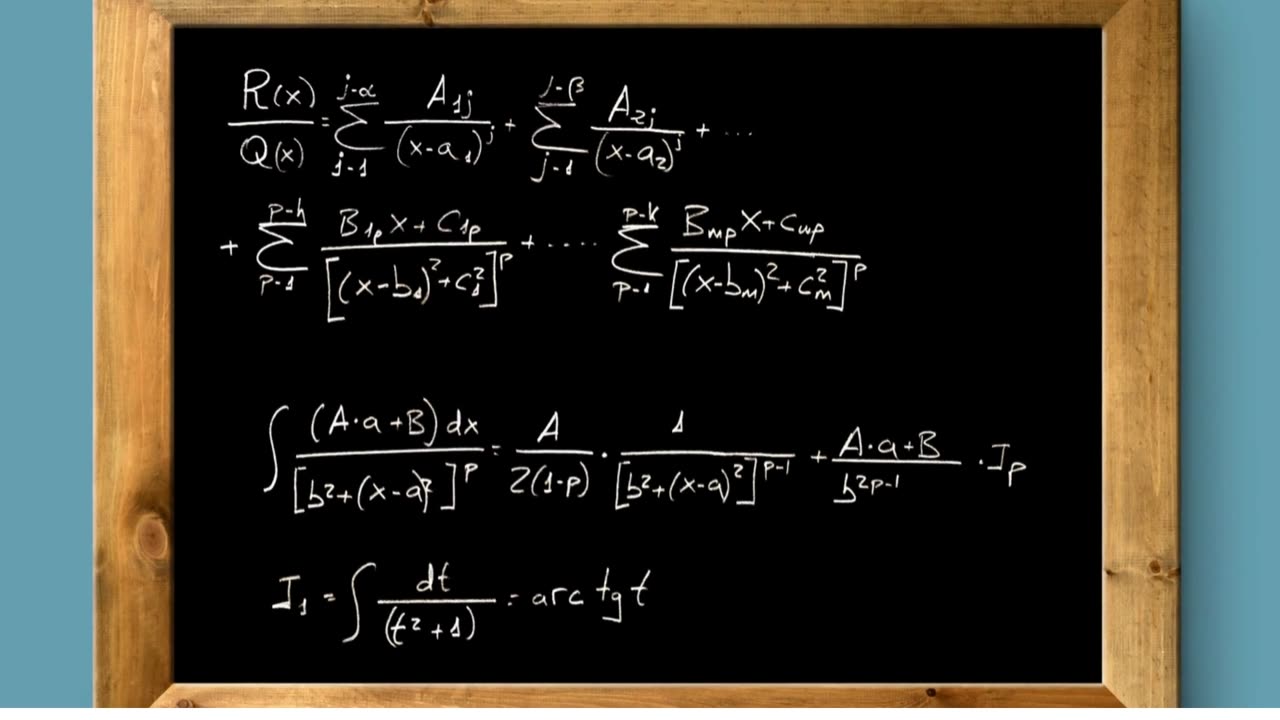 R(x)/Q(x) = ∑_{j-1}^{j-α} A_{1j}/(x-a_1)^j + ∑_{j-1}^{j-β} A_{2j}/(x-a_2)^j + ...
+ ∑_{p-1}^{p-h} (B_{1p}x + C_{1p})/[(x-b_1)^2+c_1^2]^p + .... ∑_{p-1}^{p-k} (B_{mp}x + C_{mp})/[(x-b_m)^2+c_m^2]^p
∫ (A·a+B)dx/[b^2+(x-a)^2]^p = A/2(1-p) · 1/[b^2+(x-a)^2]^{p-1} + (A·a+B)/b^{2p-1} · I_p
I_1 = ∫ dt/(t^2+1) = arc tg t